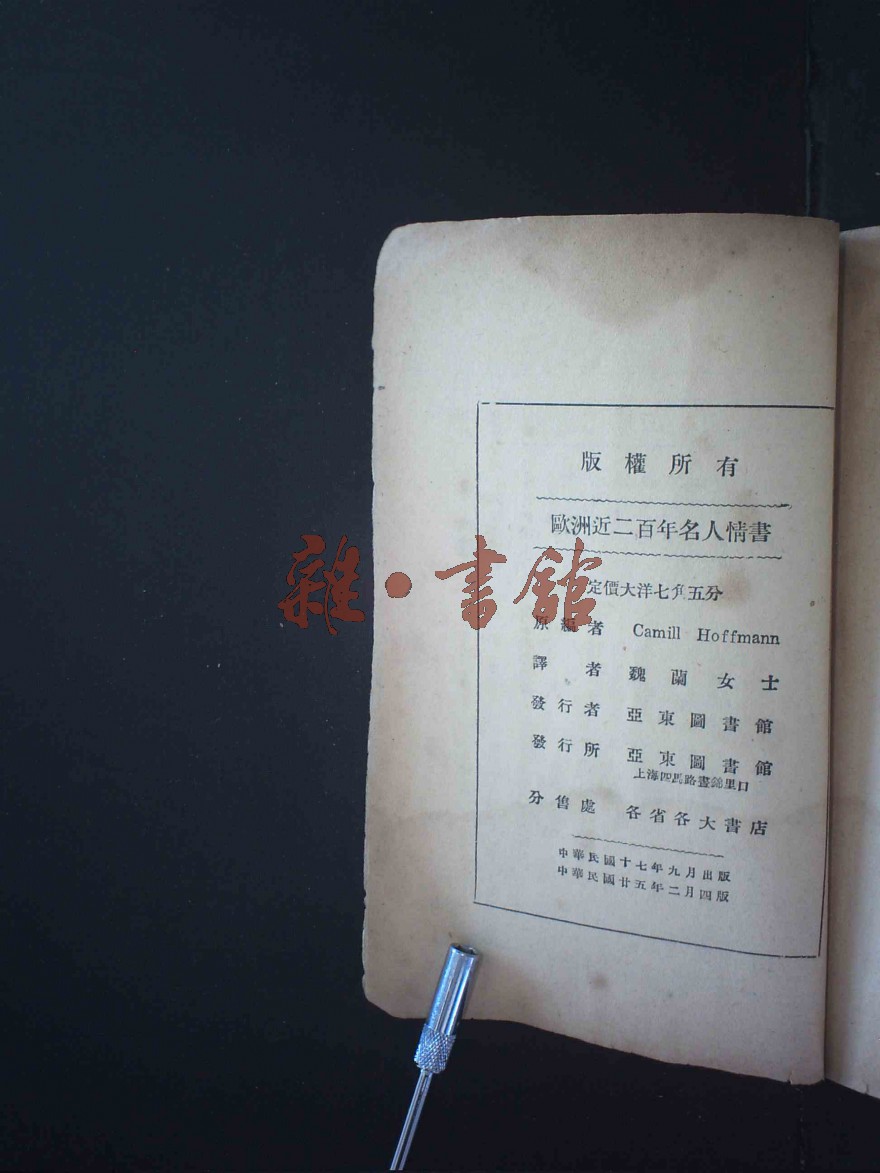 版權所有
歐洲近二百年名人情書
定價大洋七角五分
原編者 Camill Hoffmann
譯者 魏蘭女士
發行者 亞東圖書館
發行所 亞東圖書館
上海四馬路晝錦里口
分售處 各省各大書店
中華民國十七年九月出版
中華民國廿五年二月四版
雜·書館